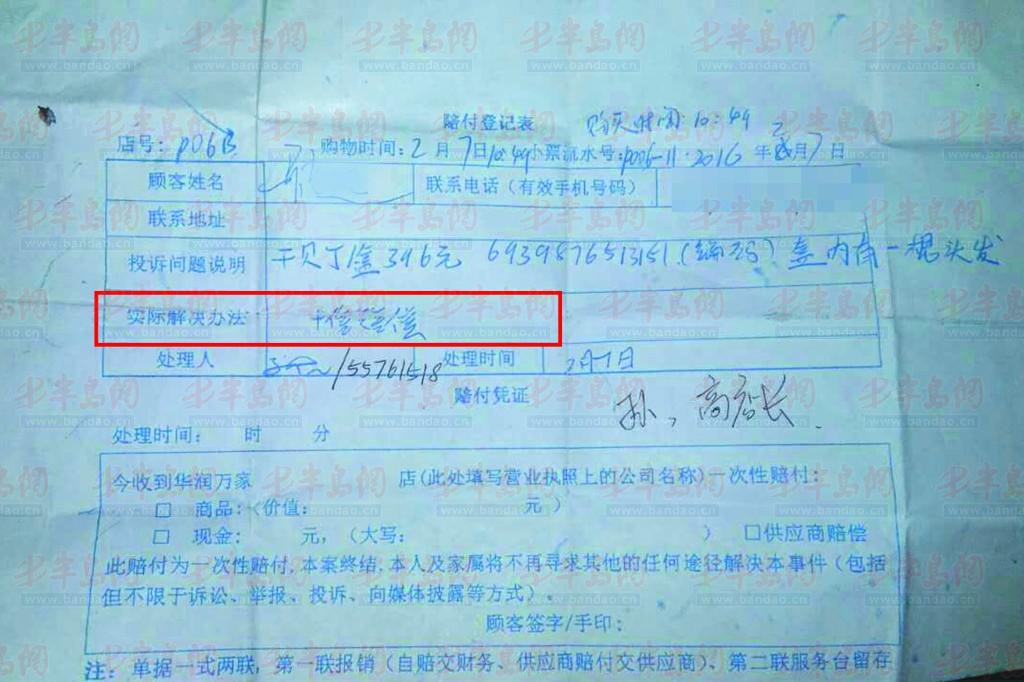 赔付登记表 购买时间:10:49
店号: P06B 购物时间:2月7日10:49小票流水号:P006-11.2016年2月7日
顾客姓名 联系电话(有效手机号码)
联系地址
投诉问题说明 干贝丁1盒396元 6939876513151(编码)盒内有一根头发
实际解决办法 十倍赔偿
处理人 /55761518 处理时间 2月7日
赔付凭证
孙,高店长.
处理时间: 时 分
今收到华润万家 店(此处填写营业执照上的公司名称)一次性赔付:
□ 商品:(价值: 元)
□ 现金: 元,(大写: ) □供应商赔偿
此赔付为一次性赔付,本案终结;本人及家属将不再寻求其他的任何途径解决本事件(包括
但不限于诉讼、举报、投诉、向媒体披露等方式)。
顾客签字/手印:
注:单据一式两联,第一联报销(自赔交财务、供应商赔付交供应商)、第二联服务台留存
半岛网
www.bandao.cn